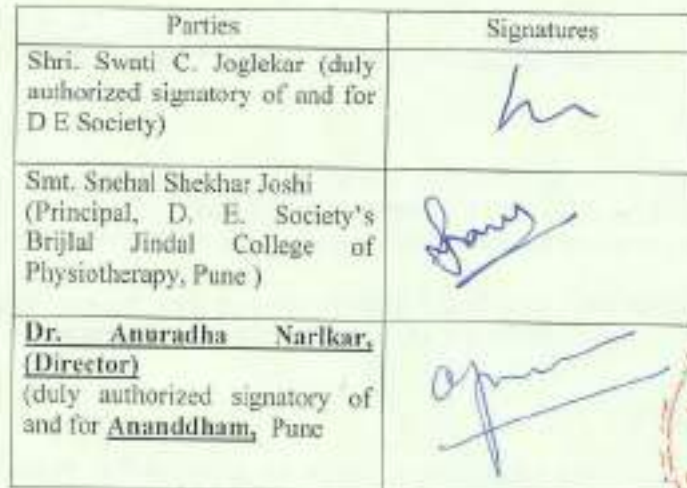 Parties Signatures
Shri. Swati C. Joglekar (duly
authorized signatory of and for
D E Society)
Smt. Snehal Shekhar Joshi
(Principal, D. E. Society's
Brijlal Jindal College of
Physiotherapy, Pune )
Dr. Anuradha Narlkar,
(Director)
(duly authorized signatory of
and for Ananddham, Pune